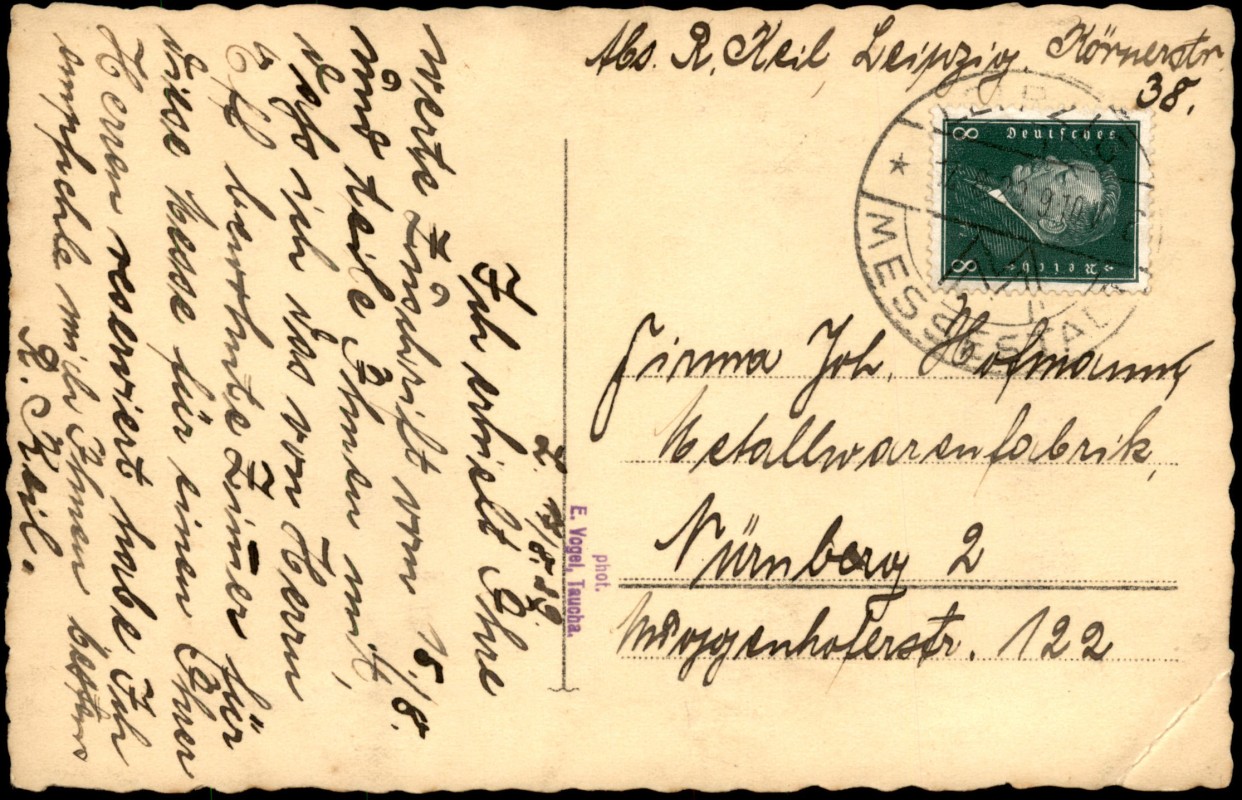 Abs. R. Keil, Leipzig. Körnerstr.
38.
8 Deutsches
8 Reich
MESSESTADT
Firma Joh. Hofmann,
Metallwarenfabrik,
Nürnberg 2
Muggenhoferstr. 122
phot.
E. Vogel, Taucha.
L. 18/8. 29.
Ich erhielt Ihre
werte Zuschrift vom 15./8.
und teile Ihnen mit,
daß ich das von Herrn
bewohnte Zimer für
diese Messe für einen Ihrer
Herren reserviert habe Ich
empfehle mich Ihnen bestens
R. Keil.